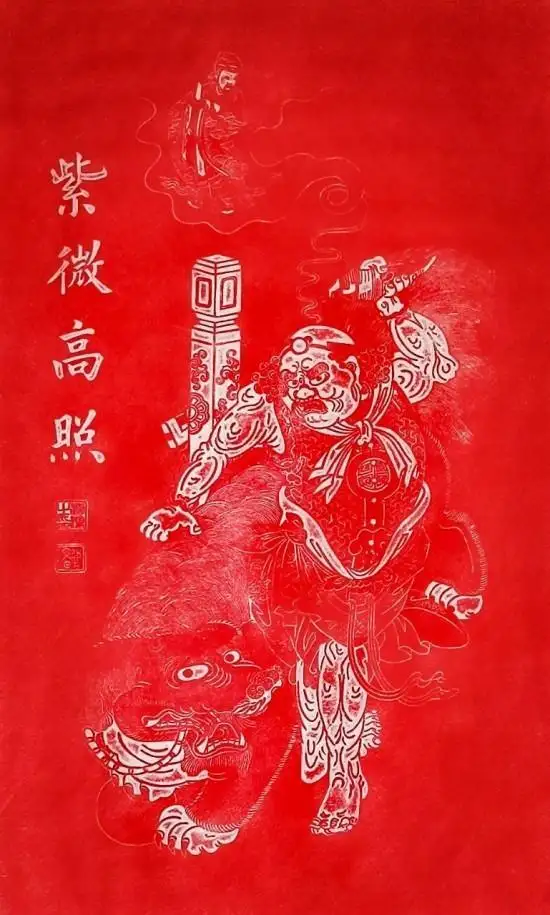 紫微高照